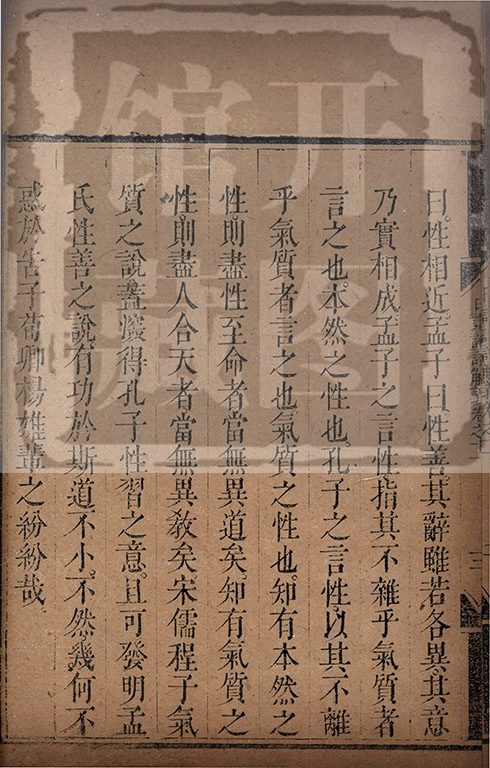 曰性相近。孟子曰性善。其辭雖若各異。其意
乃實相成。孟子之言性。指其不雜乎氣質者
言之也。本然之性也。孔子之言性。以其不離
乎氣質者言之也。氣質之性也。知有本然之
性。則盡性至命者。當無異道矣。知有氣質之
性。則盡人合天者。當無異敎矣。宋儒程子氣
質之說。蓋深得孔子性習之意。且可發明孟
氏性善之說。有功於斯道不小。不然幾何不
惑於告子荀卿楊雄輩之紛紛哉